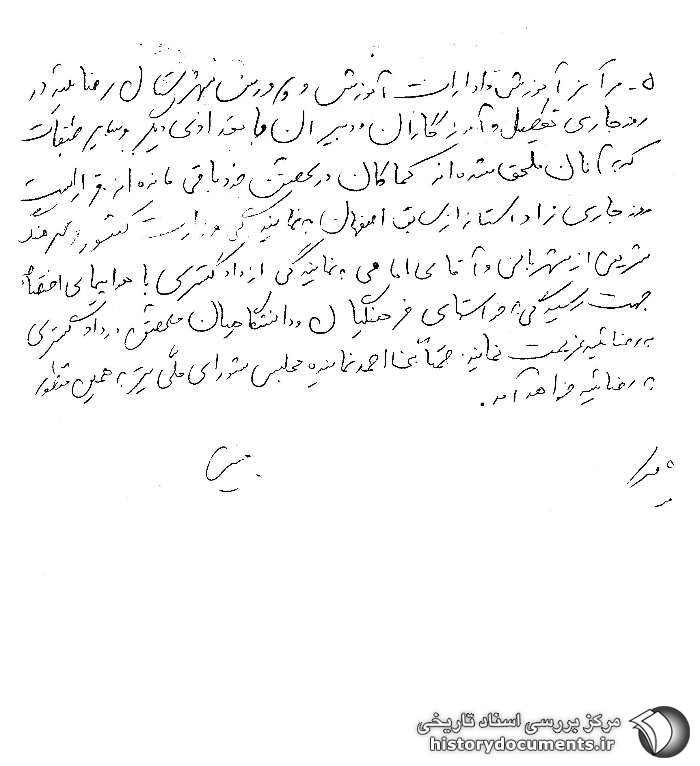 ۵- مراکز آموزش و ادارات آموزش و پرورش شهرستان رضائیه در
روز جاری تعطیل و آموزگاران و دبیران و با تعدادی دیگر و سایر طبقات
که به آنان ملحق شده‌اند کماکان در تحصن خود باقی مانده‌اند. قرار است
روز جاری زاد استاندار سابق اصفهان به نمایندگی وزارت کشور و سرهنگ
از شهربانی و آقای امامی به نمایندگی از دادگستری با هواپیمای اختصاصی
جهت رسیدگی به خواستهای فرهنگیان و دانشگاهیان متحصن در دادگستری
به رضائیه عزیمت نمایند. ضمناً احمد نماینده مجلس شورای ملی نیز به همین منظور
به رضائیه خواهد آمد.
مرکز بررسی اسناد تاریخی
historydocuments.ir